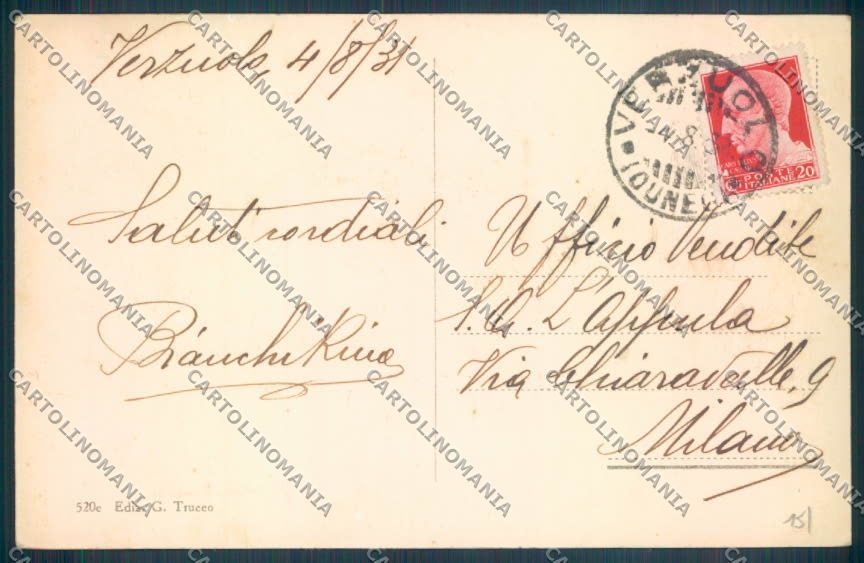 Verzuolo, 4/8/31
VERZUOLO
(CUNEO)
POSTE
ITALIANE 20
Saluti cordiali
Bianchi Rina
Ufficio Vendite
S.A. L'Appula
Via Chiaravalle, 9
Milano
520e Ediz. G. Trucco
15/
CARTOLINOMANIA